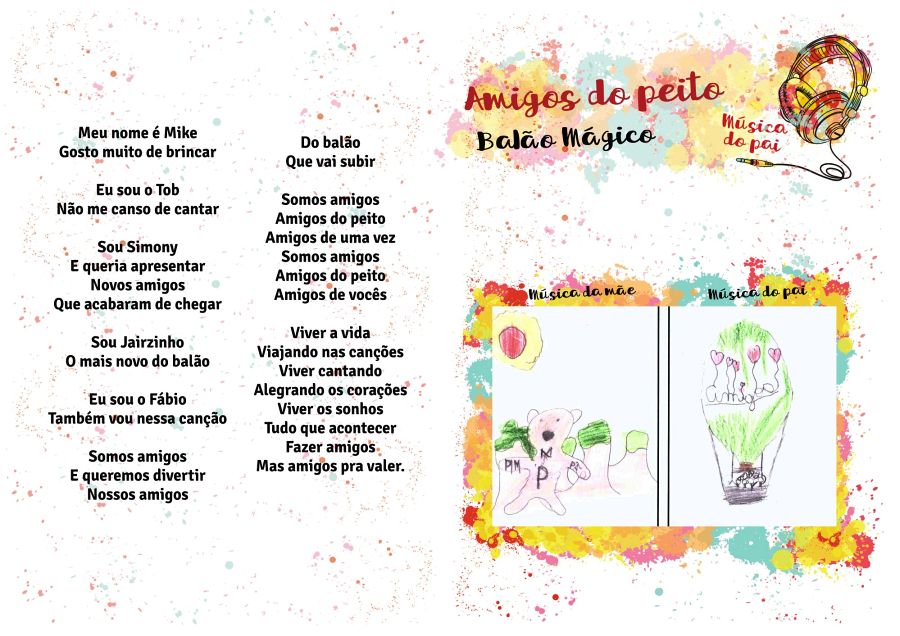 Meu nome é Mike
Gosto muito de brincar
Eu sou o Tob
Não me canso de cantar
Sou Simony
E queria apresentar
Novos amigos
Que acabaram de chegar
Sou Jairzinho
O mais novo do balão
Eu sou o Fábio
Também vou nessa canção
Somos amigos
E queremos divertir
Nossos amigos
Do balão
Que vai subir
Somos amigos
Amigos do peito
Amigos de uma vez
Somos amigos
Amigos do peito
Amigos de vocês
Viver a vida
Viajando nas canções
Viver cantando
Alegrando os corações
Viver os sonhos
Tudo que acontecer
Fazer amigos
Mas amigos pra valer.
Amigos do peito
Balão Mágico
Música
do pai
Música da mãe
Música do pai
PIM
P
amigo